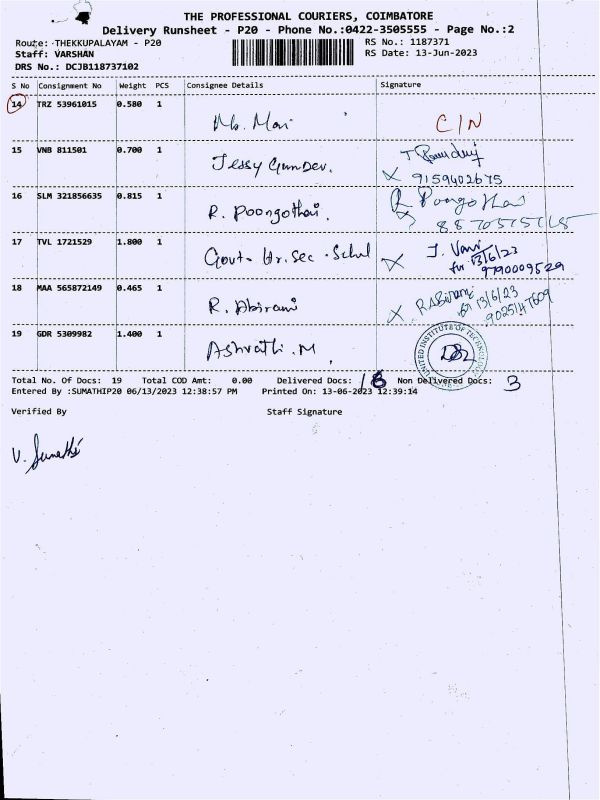 THE PROFESSIONAL COURIERS, COIMBATORE
Delivery Runsheet - P20 - Phone No.:0422-3505555 - Page No.:2
Route: THEKKUPALAYAM - P20
RS No.: 1187371
Staff: VARSHAN
RS Date: 13-Jun-2023
DRS No.: DCJB118737102
S No Consignment No Weight PCS Consignee Details Signature
14 TRZ 53961015 0.580 1
C/N
15 VNB 811501 0.700 1
Jessy
9159402675
16 SLM 321856635 0.815 1
R. Poongothai.
R Poongothai
17 TVL 1721529 1.800 1
Govt. Hr. Sec. Schul
J. Vani
for 13/6/23
9790009529
18 MAA 565872149 0.465 1
R. Abirami
R Abirami
for 13/6/23
9025147609
19 GDR 5309982 1.400 1
Ashvathi . M
UNITED INSTITUTE OF TECHNOLOGY
Total No. Of Docs: 19 Total COD Amt: 0.00 Delivered Docs: 16 Non Delivered Docs: 3
Entered By :SUMATHIP20 06/13/2023 12:38:57 PM Printed On: 13-06-2023 12:39:14
Verified By Staff Signature
V. Sumathi